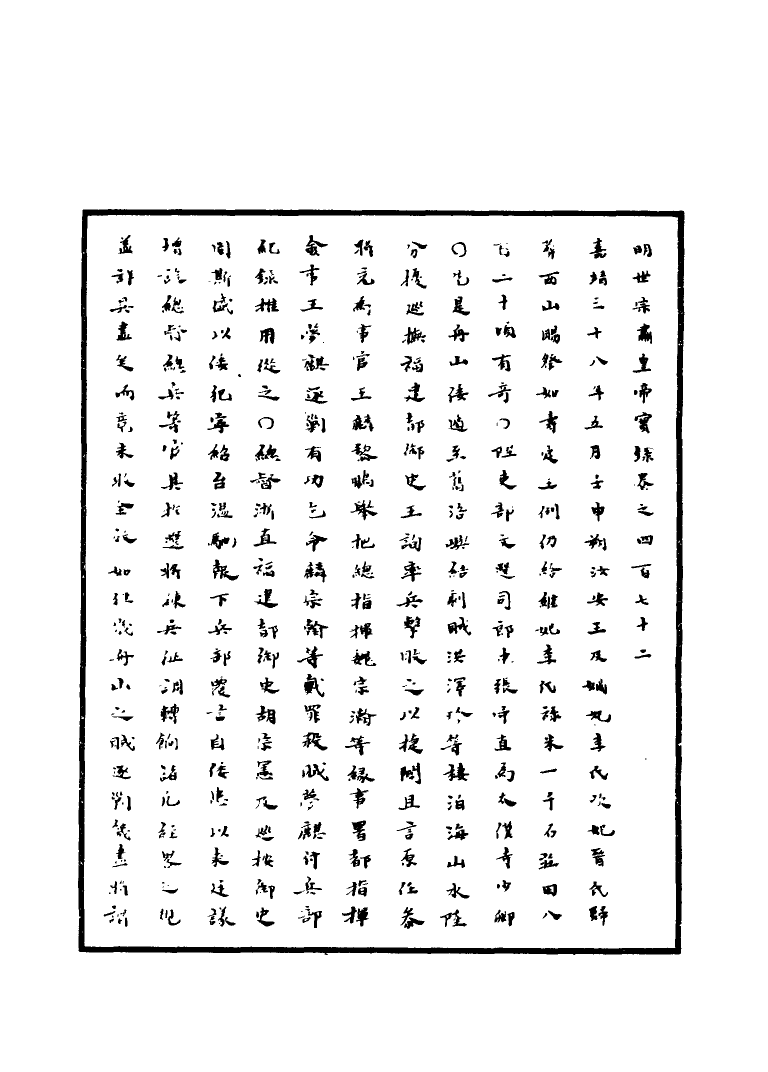 明世宗肅皇帝實錄卷之四百七十二
嘉靖三十八年五月壬申朔汝安王及嫡妃李氏次妃晉氏歸
葬西山賜祭如壽定王例仍給繼妃李氏祿米一千石莊田八
百二十頃有奇○陞吏部文選司郎中張守直為太僕寺少卿
○先是舟山倭遁至舊浯嶼結劇賊洪澤珍等棲泊海山水陸
分擾巡撫福建都御史王詢率兵擊敗之以捷聞且言原任參
將充為事官王麟黎鵬舉把總指揮魏宗瀚等緣事署都指揮
僉事王夢麒逐剿有功乞令麟宗瀚等戴罪殺賊夢麒付兵部
紀錄推用從之○總督浙直福建都御史胡宗憲及巡按御史
周斯盛以倭犯寧紹台溫馳報下兵部覆言自倭患以來廷議
增設總督總兵等官具推選將練兵徵調轉餉諸凡經畧之規
蓋詳具盡矣而竟未收全效如往歲舟山之賊逐剿幾盡將謂